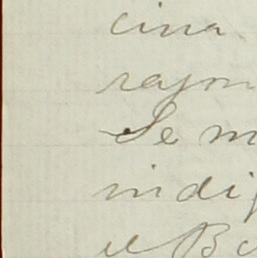 cina
rajon
Se m
indi
el B